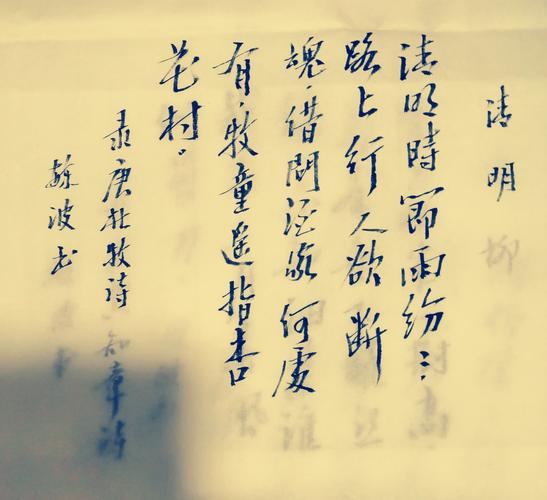 清明
清明時節雨紛〻
路上行人欲斷
魂，借問酒家何處
有，牧童遙指杏
花村。
录唐杜牧诗
波书